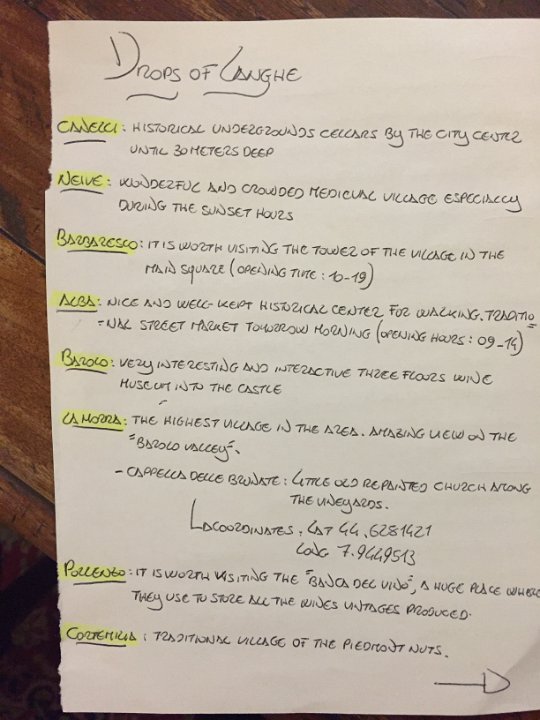 DROPS OF LANGHE
CANELLI: HISTORICAL UNDERGROUNDS CELLARS BY THE CITY CENTER
UNTIL 30 METERS DEEP
NEIVE: WONDERFUL AND CROWDED MEDIEVAL VILLAGE ESPECIALLY
DURING THE SUNSET HOURS
BARBARESCO: IT IS WORTH VISITING THE TOWER OF THE VILLAGE IN THE
MAIN SQUARE (OPENING TIME: 10-19)
ALBA: NICE AND WELL-KEPT HISTORICAL CENTER FOR WALKING. TRADITIO
-NAL STREET MARKET TOMORROW MORNING (OPENING HOURS: 09-14)
BAROLO: VERY INTERESTING AND INTERACTIVE THREE FLOORS WINE
MUSEUM INTO THE CASTLE
LA MORRA: THE HIGHEST VILLAGE IN THE AREA. AMAZING VIEW ON THE
"BAROLO VALLEY".
- CAPPELLA DELLE BRUNATE: LITTLE OLD REPAINTED CHURCH AMONG
THE VINEYARDS.
COORDINATES: LAT 44.6281421
LONG 7.9449513
POLLENZO: IT IS WORTH VISITING THE "BANCA DEL VINO", A HUGE PLACE WHERE
THEY USE TO STORE ALL THE WINES VINTAGES PRODUCED.
CORTEMILIA: TRADITIONAL VILLAGE OF THE PIEDMONT NUTS.